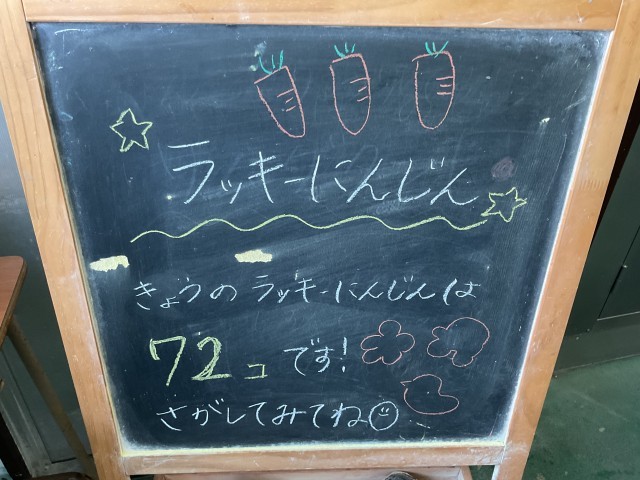 ラッキーにんじん
きょうのラッキーにんじんは
72コです!
さがしてみてね